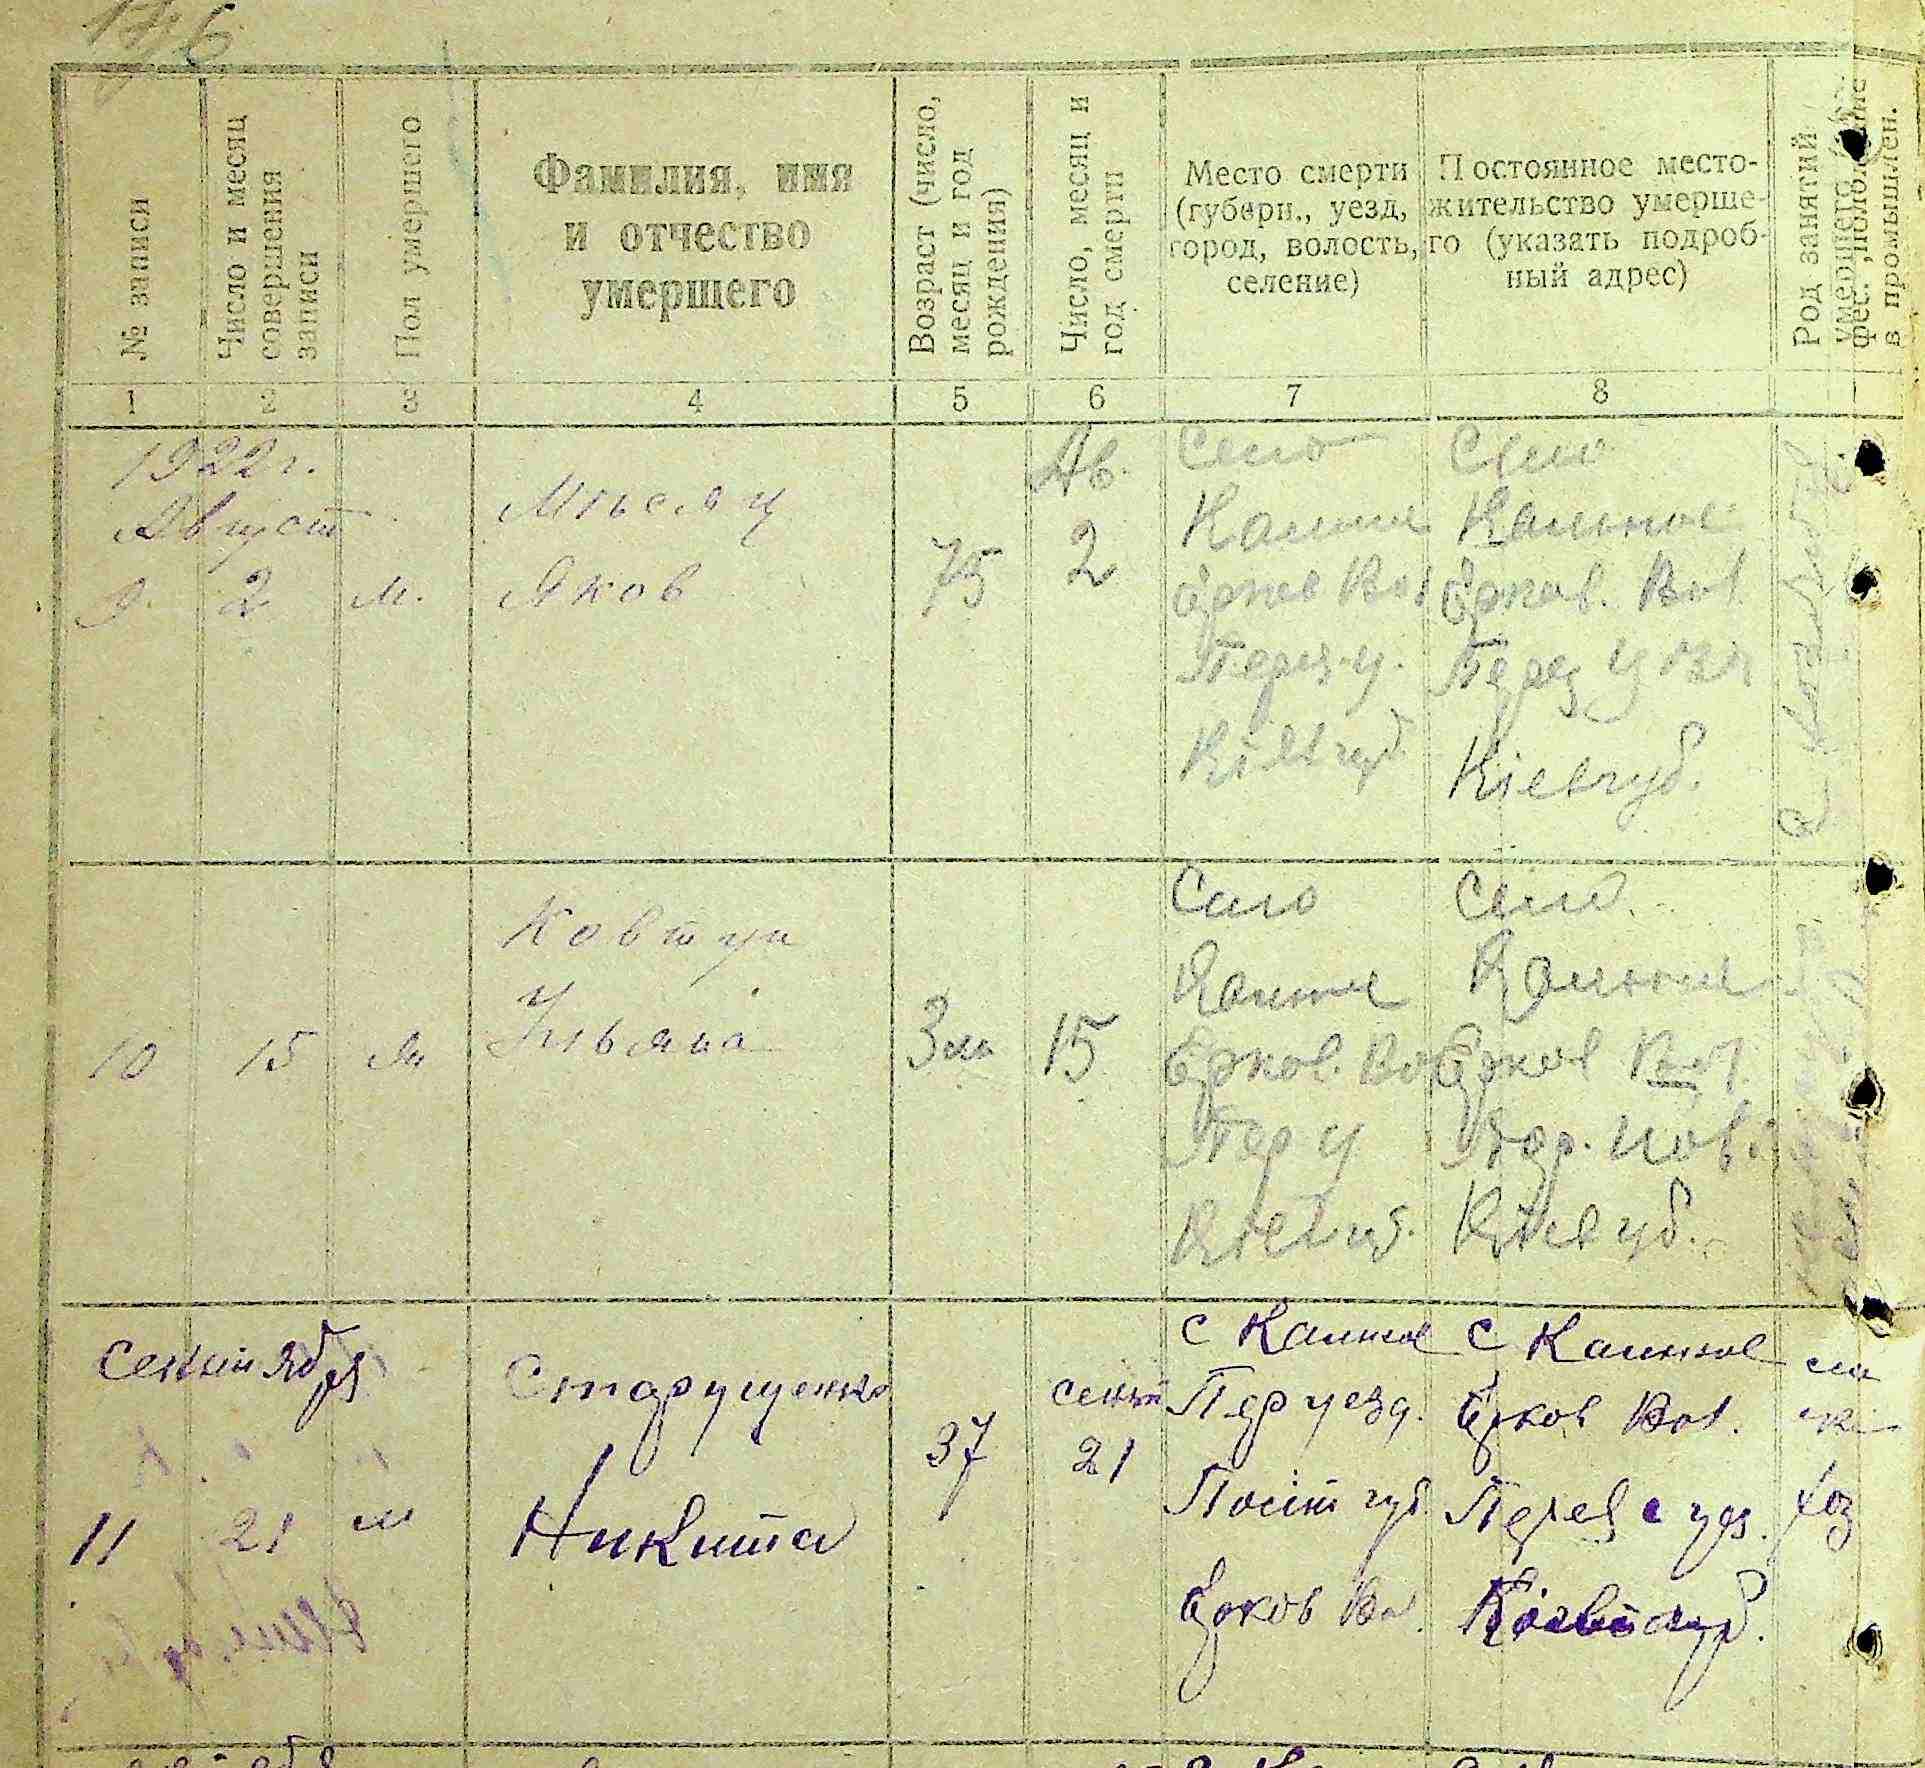 176
№ записи
Число и месяц
совершения
записи
Пол умершего
Фамилия, имя
и отчество
умершего
Возраст (число,
месяц и год
рождения)
Число, месяц и
год смерти
Место смерти
(губерн., уезд,
город, волость,
селение)
Постоянное место-
жительство умерше-
го (указать подроб-
ный адрес)
Род занятий
умершего
фес., положение
в промышлен.
1
2
3
4
5
6
7
8
1922 г.
Август
9. 2 м.
Мѣсяц
Яков
75
Ав.
2
Село
Ерков Вол
Перея. у.
Кіев губ
Село
Калное
Ерков. Вол
Кіев губ.
10 15 м
Ковтун
Ульяна
3 м
15
Село
Ерков. Во
Пер у
Кіев губ.
Село
Ерков Вол.
Кіев губ.
Сентября
11 21 м
Старущенко
Никита
37
сент
21
с Калное
Пер уезд.
Полт губ.
Ерков Во.
с Калное
Ерков Вол.
Переяс уез.
Кіевск губ.
хоз